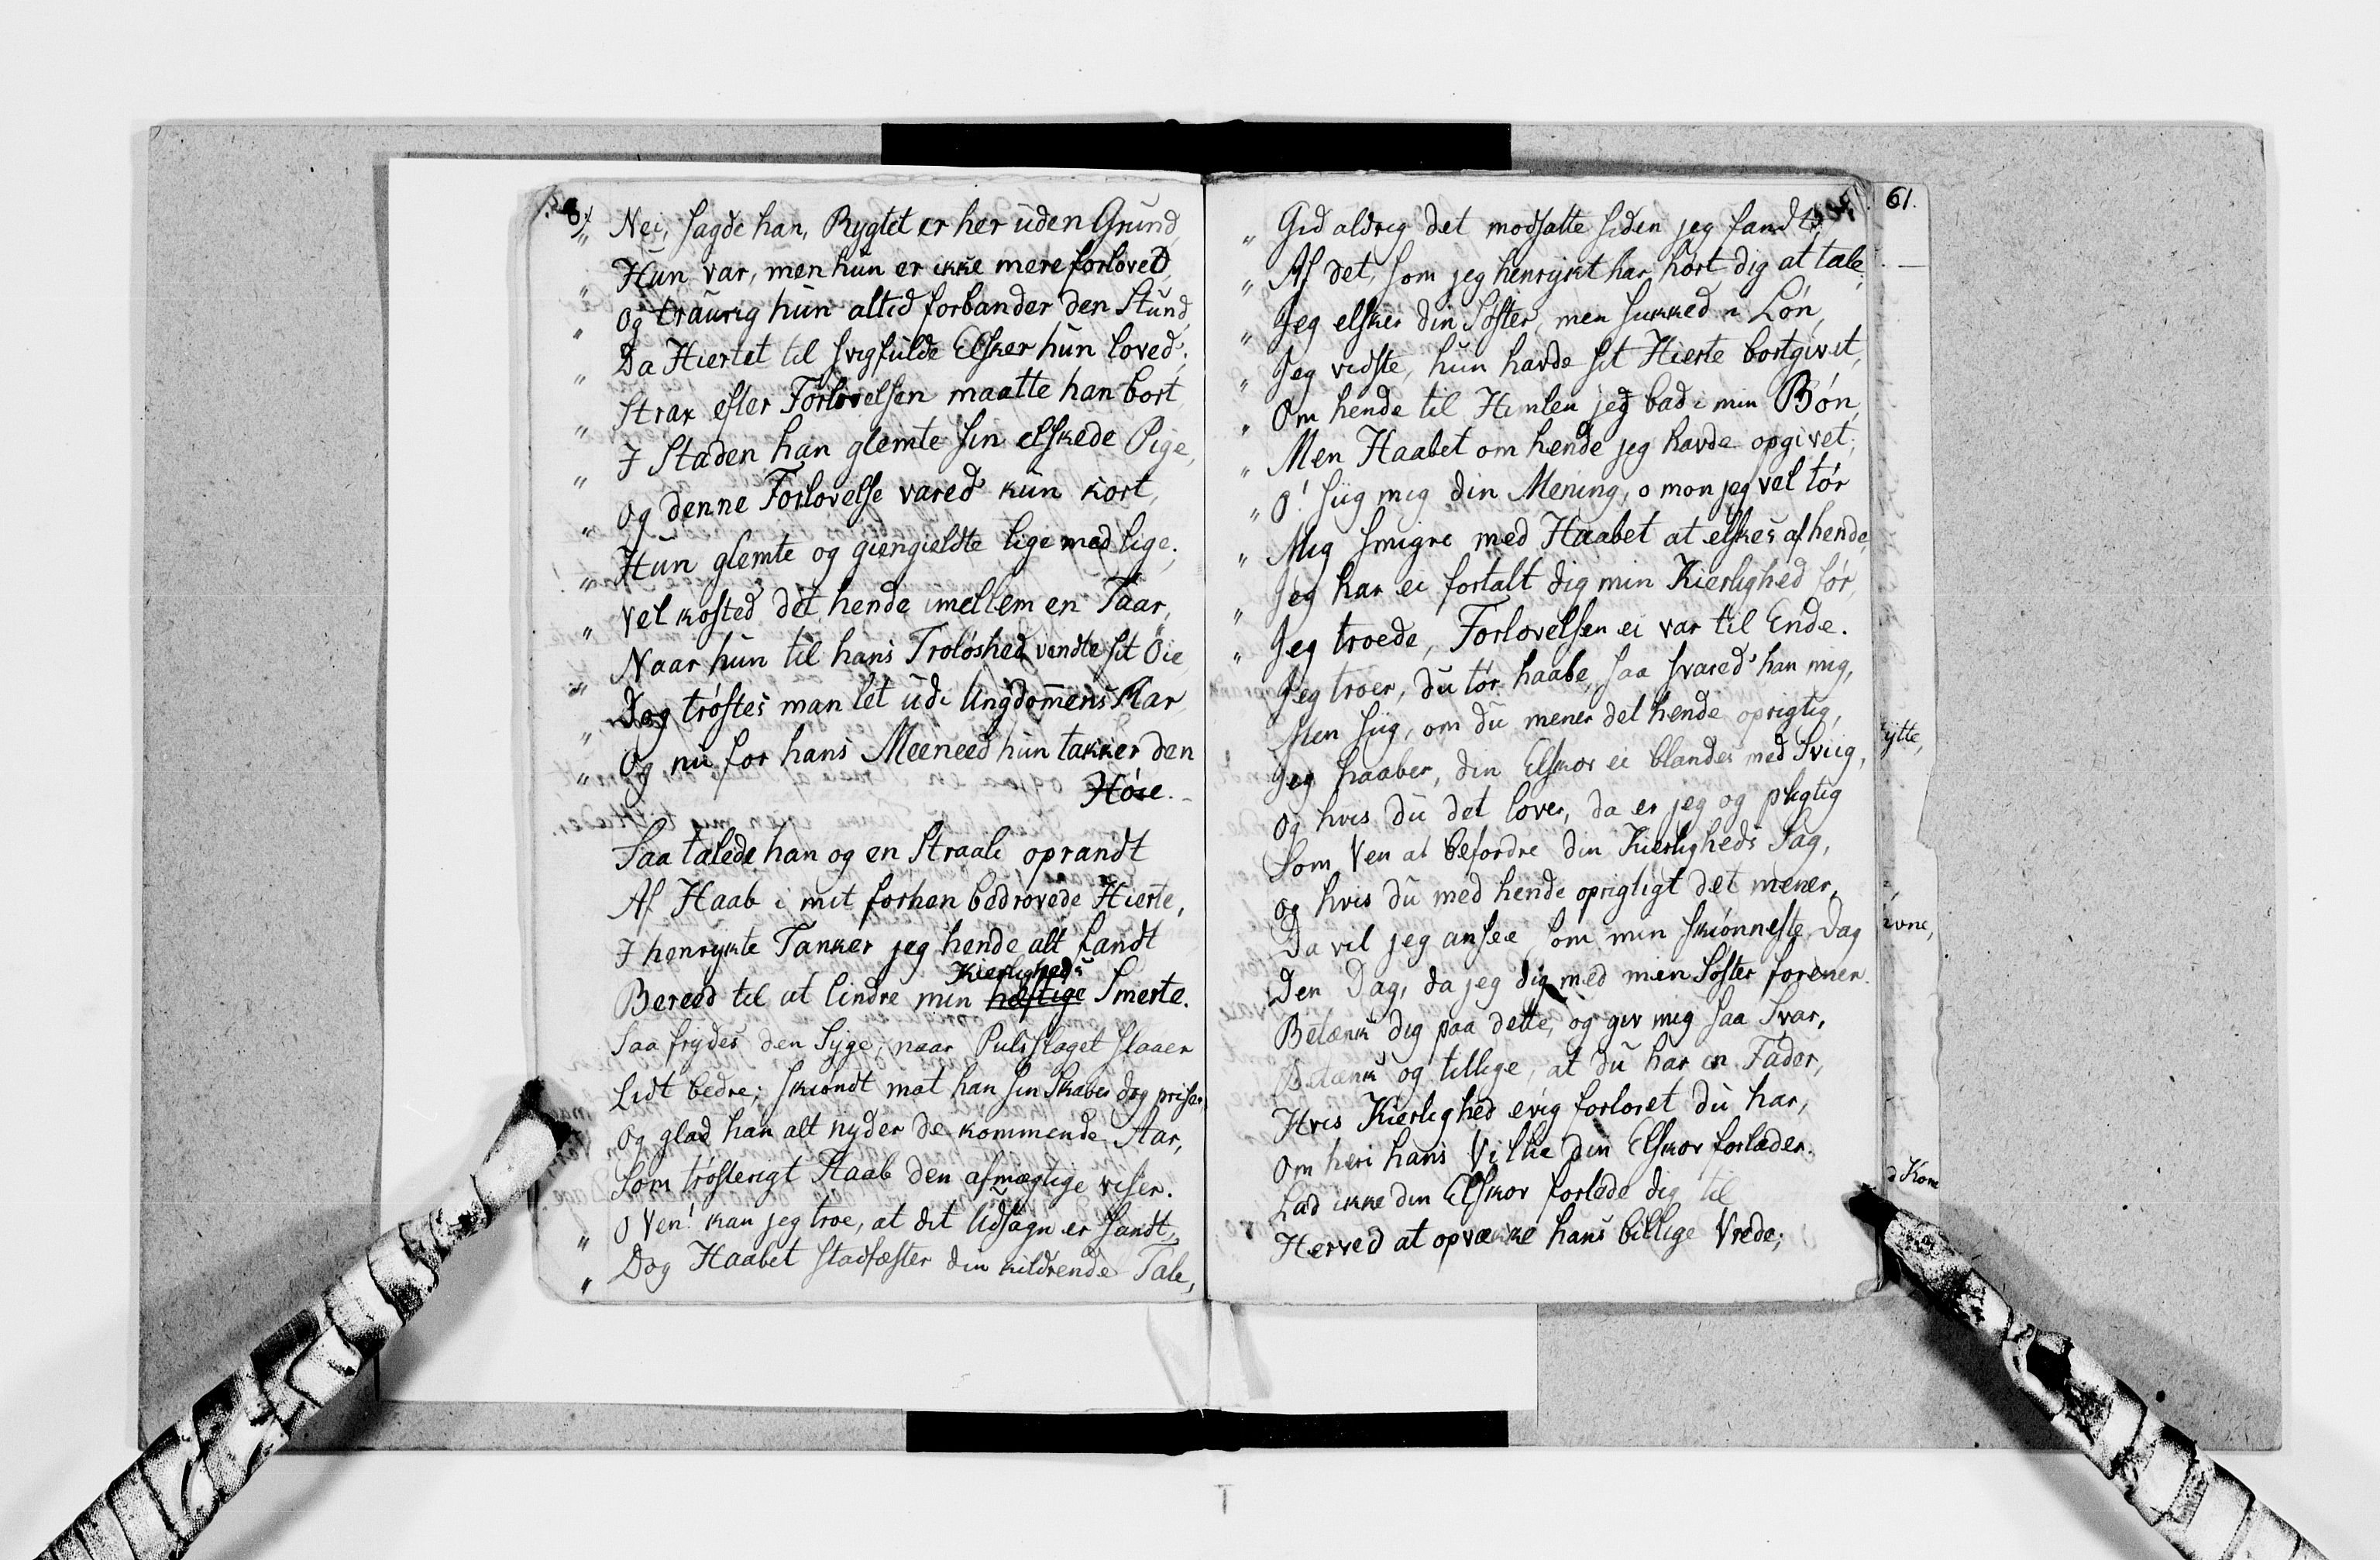 „ Nei, sagde han, Rygtet er her uden Grund,
„ Hun var, men hun er ikke mere forlovet,
„ Og traurig hun altid forbander den Stund,
„ Da Hiertet til svigfulde Elsker hun loved';
„ Strax efter Forlovelsen maatte han bort,
„ I Staden han glemte sin elskede Pige,
„ Og denne Forlovelse vared' kun kort,
„ Hun glemte og giengieldte lige med lige;
„ Vel kosted' det hende imellem en Taar,
„ Naar hun til hans Troløshed vendte sit Øie,
„ Dog trøstes man let udi Ungdommens Aar,
„ Og nu for hans Meeneed hun takker den
Høie. -
Saa talede han og en Straale oprandt
Af Haab i mit forhen bedrøvede Hierte,
I henrykte Tanker jeg hende alt fandt
Kierligheds
Bereed til at lindre min heftige Smerte.
Saa frydes den Syge, naar Pulsslaget slaaer
Lidt bedre; skiøndt mat han sin Skaber dog priser,
Og glad han alt nyder de kommende Aar,
Som trøsterigt Haab den afmægtige viser.
„ O Ven! kan jeg troe, at dit Udsagn er sandt,
„ Dog Haabet stadfæster din kildrende Tale,
„ Gid aldrig det modsatte siden jeg fandt
„ Af det, som jeg henrykt har hørt dig at tale;
„ Jeg elsker din Søster, men sukked i Løn,
„ Jeg vidste, hun havde sit Hierte bortgivet,
„ Om hende til Himlen jeg bad i min Bøn,
„ Men Haabet om hende jeg havde opgivet;
„ O! siig mig din Mening, o mon jeg vel tør
„ Mig smigre med Haabet at elskes af hende,
„ Jeg har ei fortalt dig min Kierlighed før,
„ Jeg troede, Forlovelsen ei var til Ende.
Jeg troer, du tør haabe, saa svared' han mig,
Men siig, om du mener det hende oprigtig,
Jeg haaber, din Elskov ei blandes med Sviig,
Og hvis du det lover, da er jeg og pligtig
Som Ven at befordre din Kierligheds Sag,
Og hvis du med hende oprigtigt det mener,
Da vil jeg ansee som min skiønneste Dag
Den Dag, da jeg dig med min Søster forener.
Betænk dig paa dette, og giv mig saa Svar,
Betænk og tillige, at du har en Fader,
Hvis Kierlighed evig forloret du har,
Om heri hans Villie din Elskov forlader.
Lad ikke din Elskov forlede dig til
Herved at opvække hans billige Vrede;
61.
ytte,
ivne,
d Kone